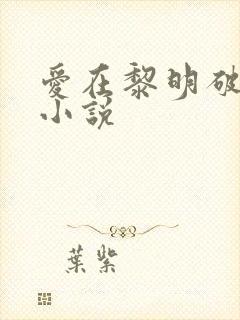 愛在黎明破
小說
葉紫